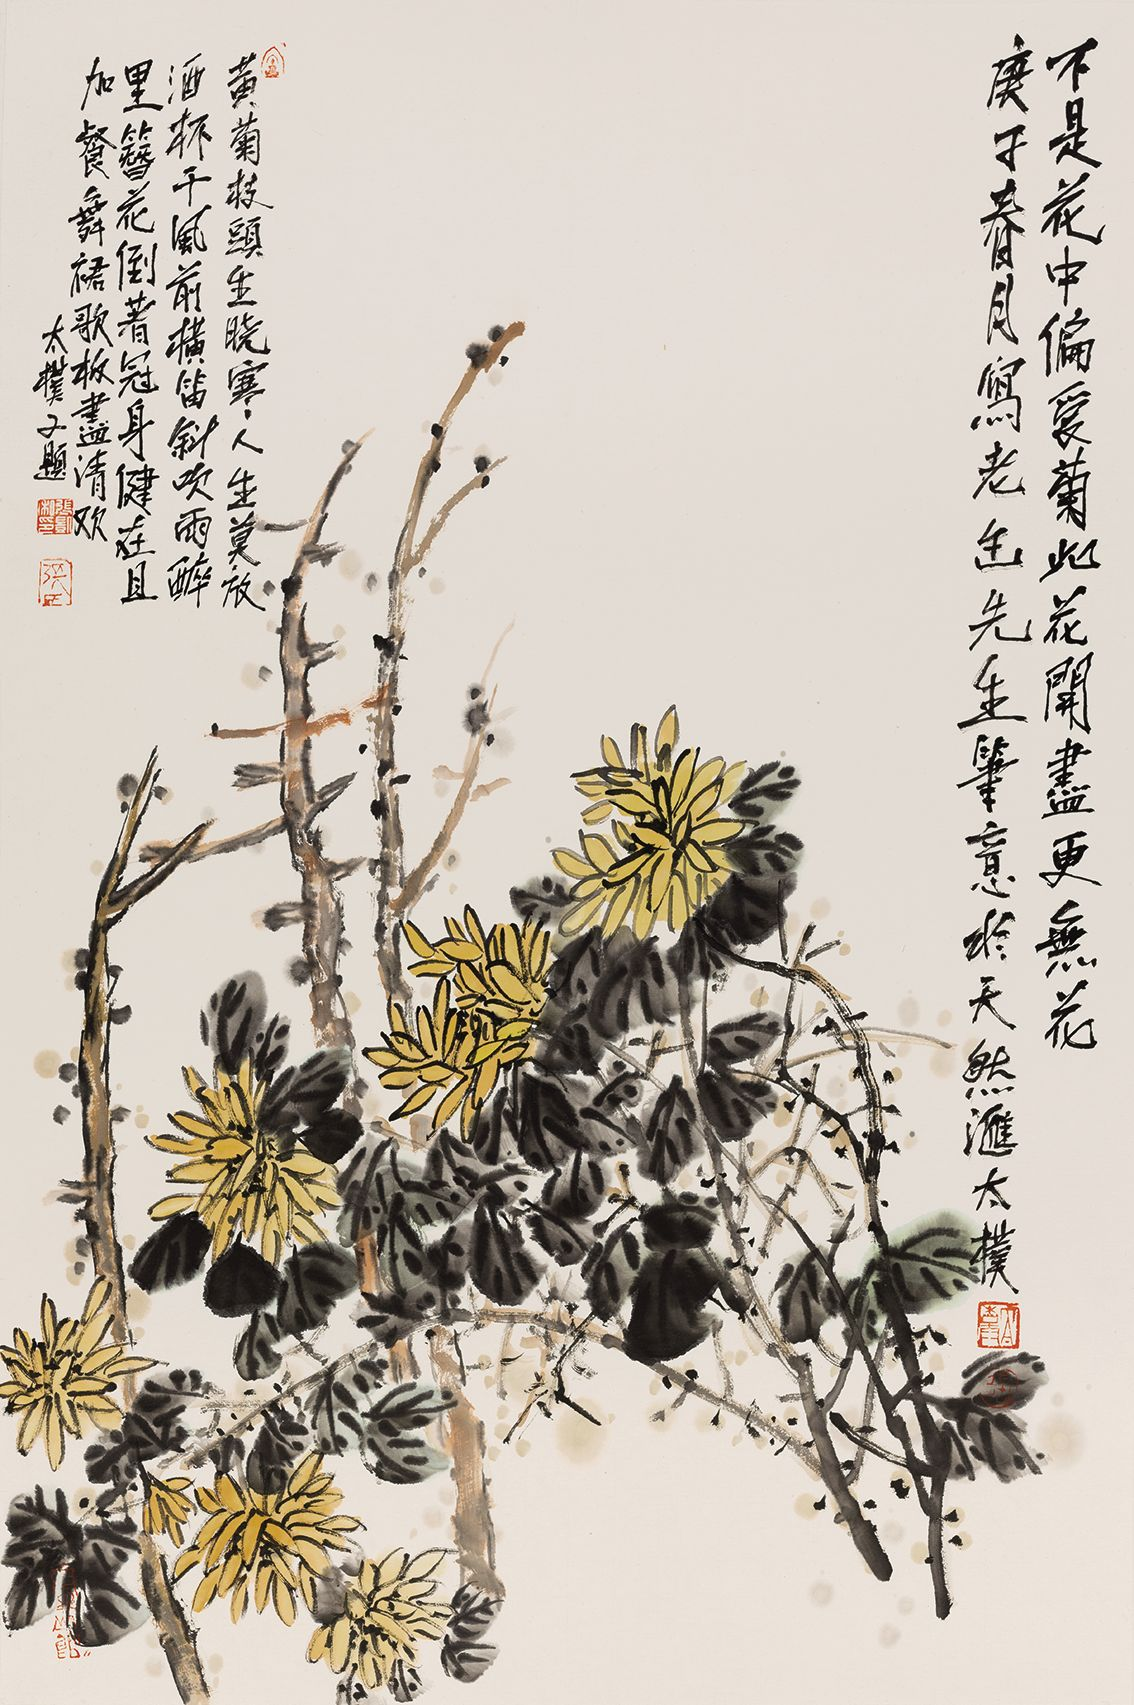 不是花中偏愛菊此花開盡更無花
庚子春月寫老缶先生筆意於天然滙太樸
黃菊枝頭生曉寒、人生莫放
酒杯干風前橫笛斜吹雨醉
里簪花倒著冠身健在且
加餐舞裙歌板盡清欢
太樸又題